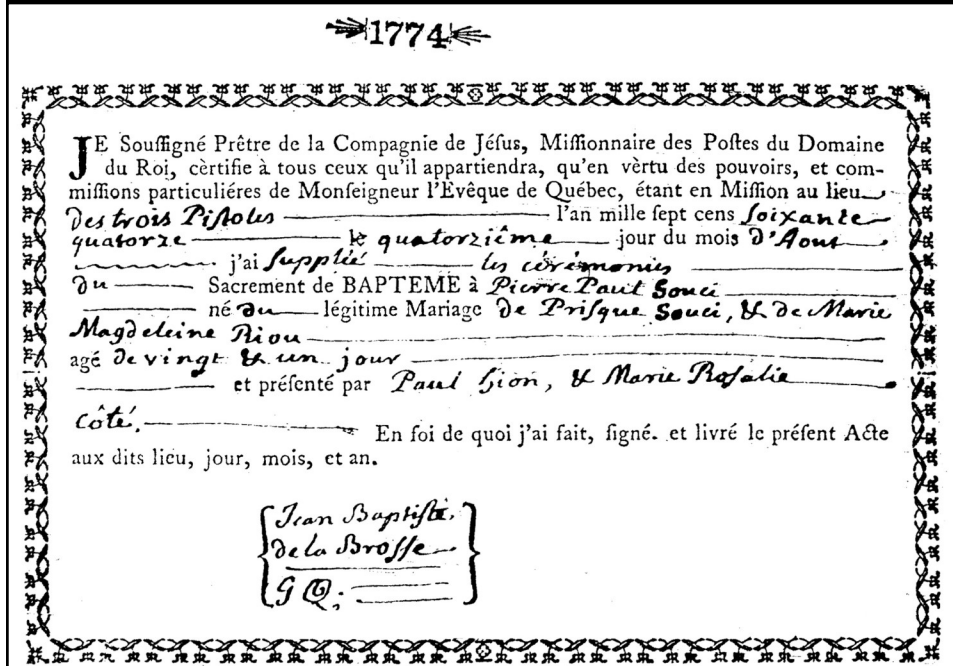 1774
JE Souſſigné Prêtre de la Compagnie de Jéſus, Miſſionnaire des Poſtes du Domaine
du Roi, cèrtifie à tous ceux qu'il appartiendra, qu'en vèrtu des pouvoirs, et com-
miſſions particuliéres de Monſeigneur l'Evêque de Québec, étant en Miſſion au lieu
des trois Piſtoles l'an mille ſept cens ſoixante
quatorze le quatorziême jour du mois d'Aout
j'ai ſupplié les cérémonies
du Sacrement de BAPTEME à Pierre Paul Souci
né du légitime Mariage de Priſque Souci, & de Marie
Magdeleine Riou
agé de vingt & un jour
et préſenté par Paul & Marie Roſalie
côté. En foi de quoi j'ai fait, ſigné. et livré le préſent Acte
aux dits lieu, jour, mois, et an.
Jean Baptiſte
de la Broſſe